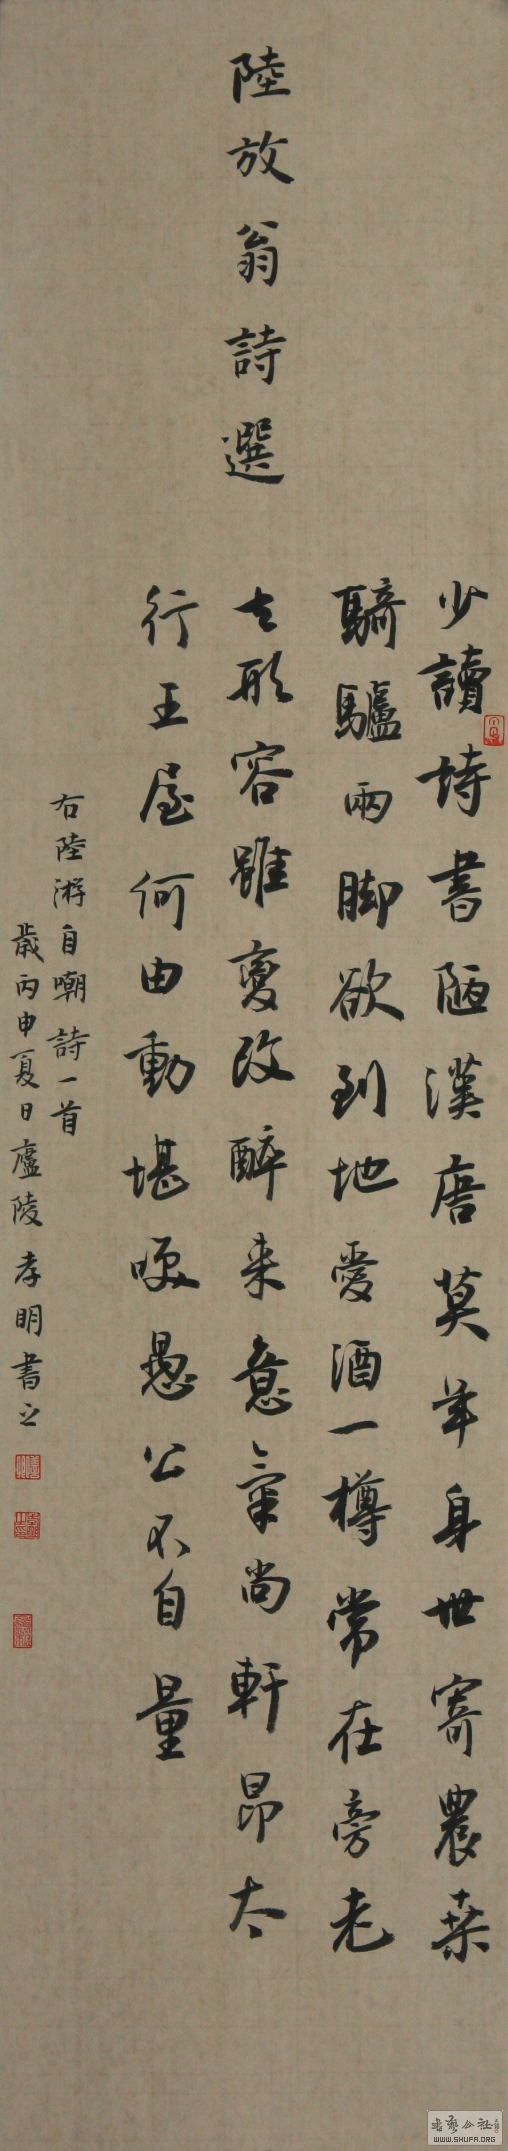 陸放翁詩選
少讀詩書陋漢唐莫年身世寄農桒
騎驢兩脚欲到地愛酒一樽常在旁老
去形容雖變改醉来意氣尚軒昂太
行王屋何由動堪咲愚公不自量
右陸游自嘲詩一首
歲丙申夏日廬陵孝明書之
書藝公社
WWW.SHUFA.ORG